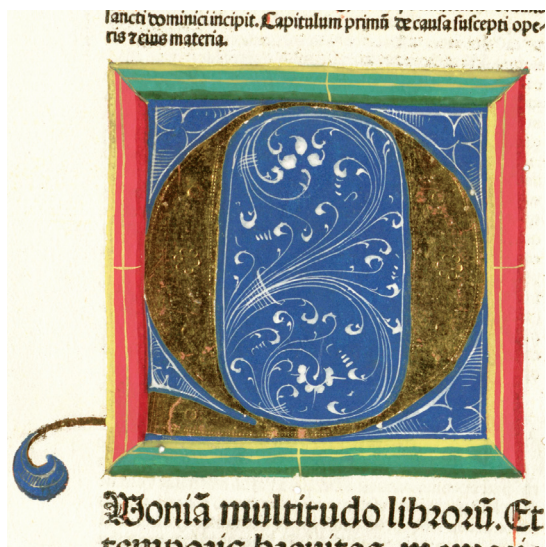 sancti dominici incipit. Capitulum primū de causa suscepti ope-
ris ⁊ eius materia.
Q
Uoniā multitudo librorū. Et
temporis brevitas